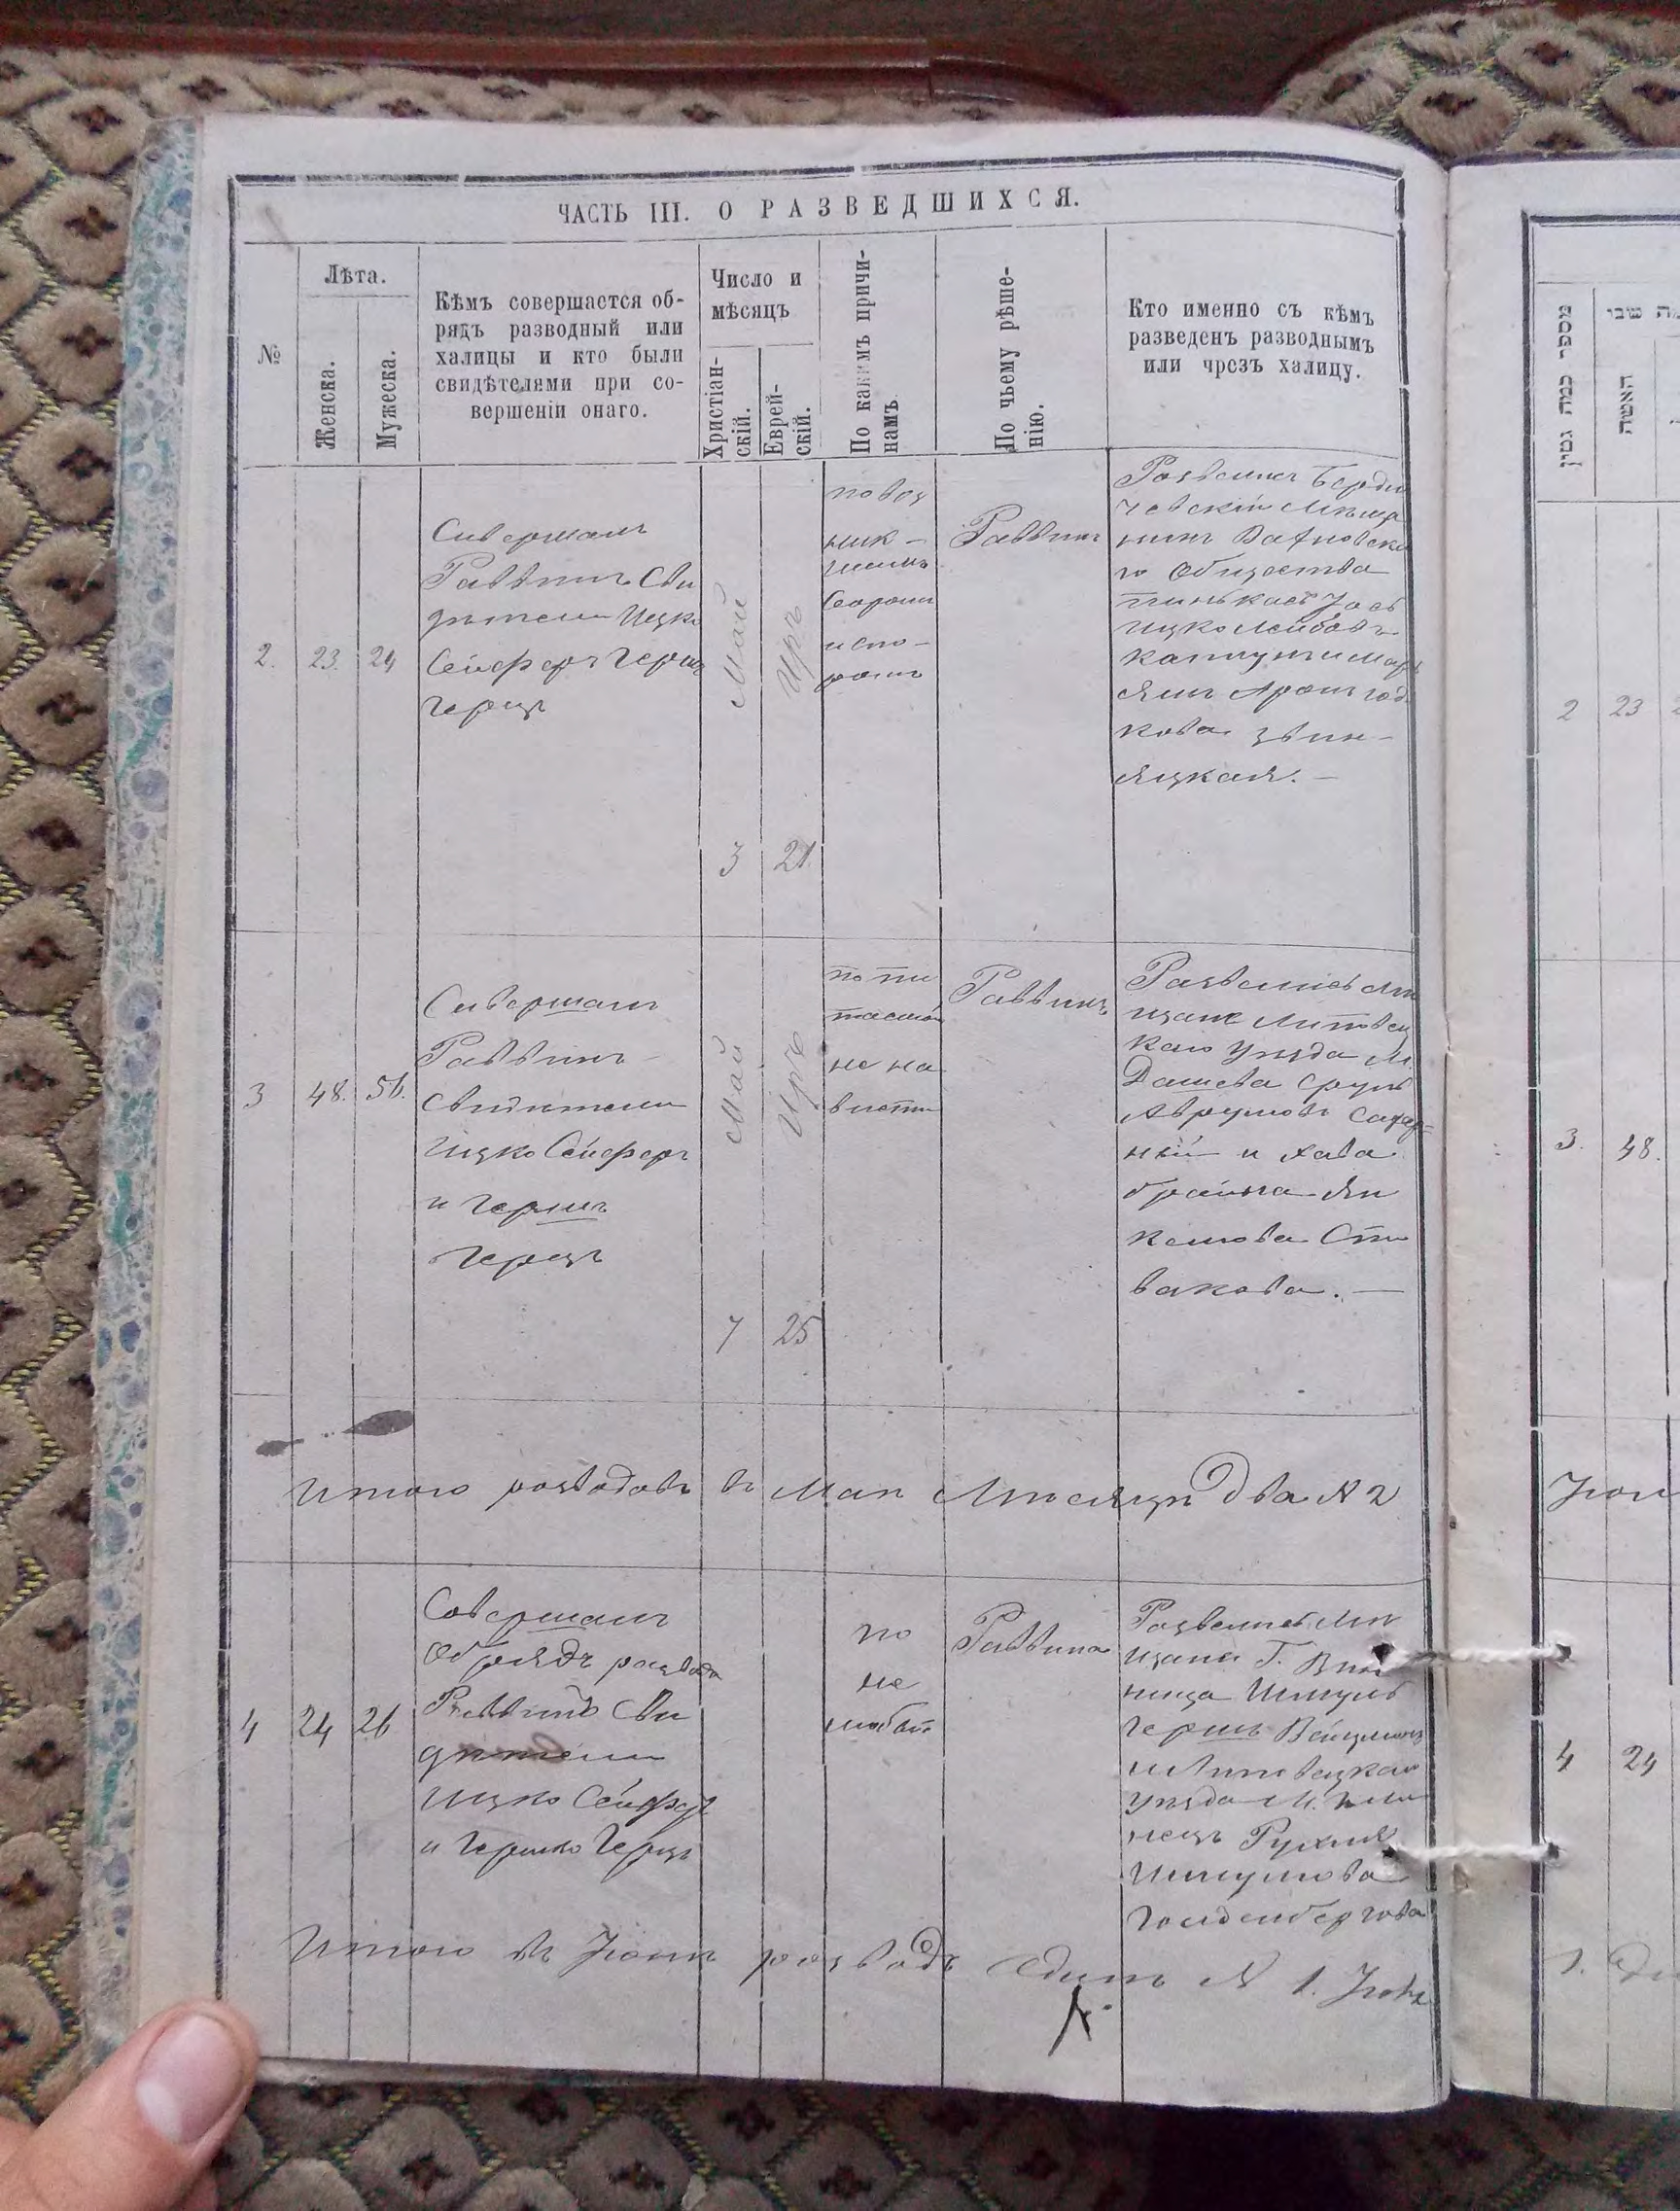 ЧАСТЬ III. О РАЗВЕДШИХСЯ.
№
Лѣта.
Женска.
Мужеска.
Кѣмъ совершается об-
рядъ разводный или
халицы и кто были
свидѣтелями при со-
вершеніи онаго.
Число и
мѣсяцъ
Христіан-
скій.
Еврей-
скій.
По какимъ причи-
намъ
По чьему рѣше-
нію.
Кто именно съ кѣмъ
разведенъ разводнымъ
или чрезъ халицу.
2.
23.
24
Совершалъ
Раввинъ Сви
дѣтели Ицко
Сейферъ Герш
Герцъ
Май
3
Иръ
21.
по воз
ник-
шимъ
Раввинъ
Развелись Берди
чевскій Мѣща
нинъ
го Общества
Пинькасъ Іось
Ицко Лейбовъ
Аронъ
кова Звин-
яцкая. —
3
48.
56.
Совершалъ
Раввинъ
свидѣтели
Ицко Сейферъ
и Гершъ
Герцъ
Май
7
Иръ
25
по пи
таемой
не на
висти
Раввинъ
Развелись мѣ
щане Липовец
каго уѣзда М.
Дашева Сруль
Аврумовъ
ный и Хава
брайна Ян
келева Спи
вакова. —
Итого разводовъ въ Маѣ Мѣсяцѣ два № 2
4
24
26
Совершалъ
Обрядъ развода
Раввинъ Сви
дѣтели
Ицко Сейферъ
и Гершко Герцъ
по
не
любви
Раввина
Развелись мѣ
щане Г. Вин
ница Шмуль
Гершъ Вейцманъ
и Липовецкаго
уѣзда М.
нецъ Рухля
Шмулова
Гольденбергова
Итого въ Іюнѣ разводъ Одинъ № 1.
מספר כמה גטין
האשה
2
23
3.
48.
4
24
1.